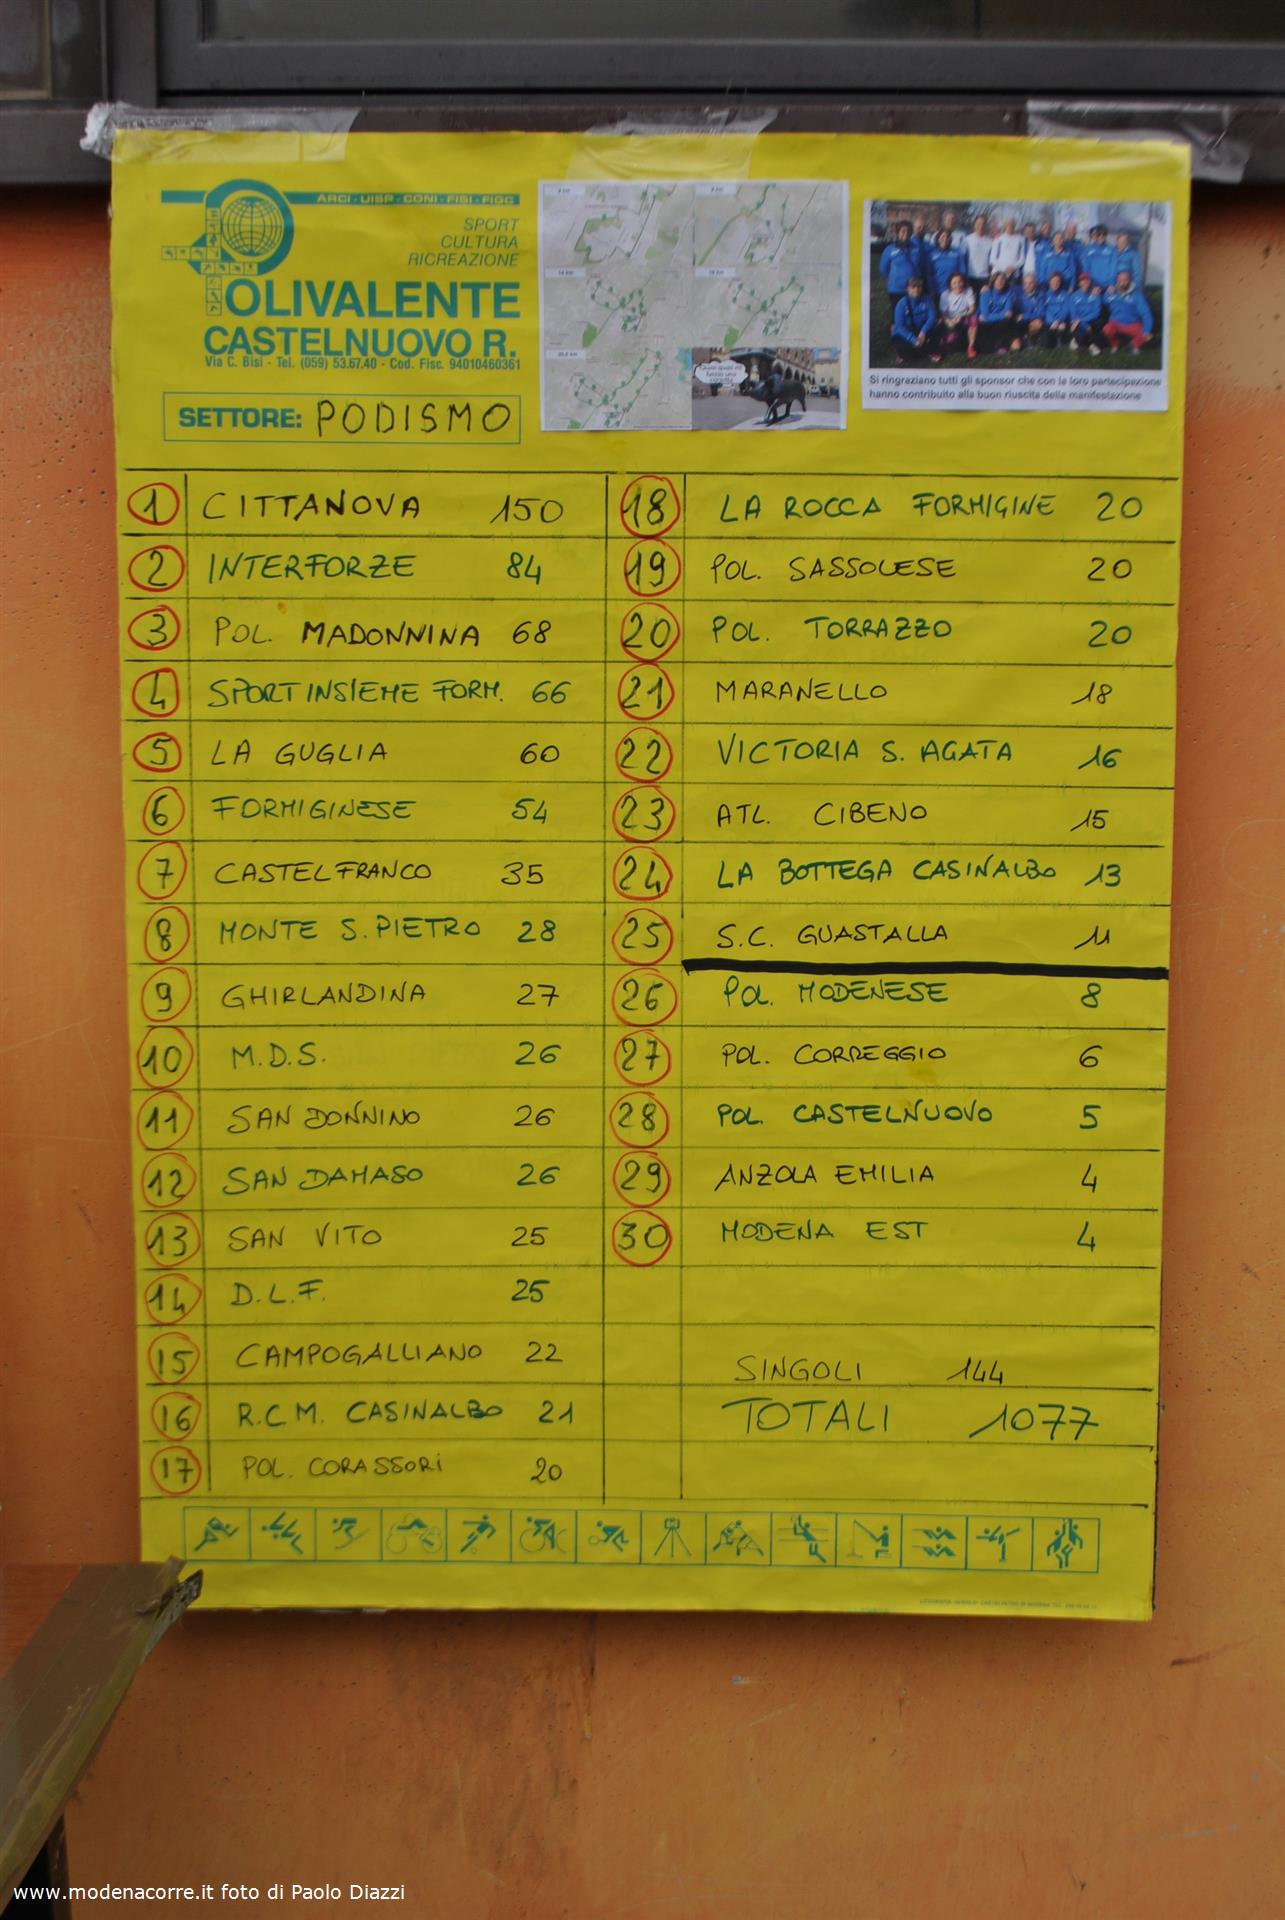 ARCI - UISP - CONI - FISI - FIGC
SPORT
CULTURA
RICREAZIONE
POLIVALENTE
CASTELNUOVO R.
Via C. Bisi - Tel. (059) 53.67.40 - Cod. Fisc. 94010460361
SETTORE: PODISMO
Si ringraziano tutti gli sponsor che con la loro partecipazione
hanno contribuito alla buon riuscita della manifestazione
1 CITTANOVA 150
2 INTERFORZE 84
3 POL. MADONNINA 68
4 SPORTINSIEME FORM. 66
5 LA GUGLIA 60
6 FORMIGINESE 54
7 CASTELFRANCO 35
8 MONTE S. PIETRO 28
9 GHIRLANDINA 27
10 M.D.S. 26
11 SAN DONNINO 26
12 SAN DAMASO 26
13 SAN VITO 25
14 D.L.F. 25
15 CAMPOGALLIANO 22
16 R.C.M. CASINALBO 21
17 POL. CORASSORI 20
18 LA ROCCA FORMIGINE 20
19 POL. SASSOLESE 20
20 POL. TORRAZZO 20
21 MARANELLO 18
22 VICTORIA S. AGATA 16
23 ATL. CIBENO 15
24 LA BOTTEGA CASINALBO 13
25 S.C. GUASTALLA 11
26 POL. MODENESE 8
27 POL. CORREGGIO 6
28 POL. CASTELNUOVO 5
29 ANZOLA EMILIA 4
30 MODENA EST 4
SINGOLI 144
TOTALI 1077
www.modenacorre.it foto di Paolo Diazzi